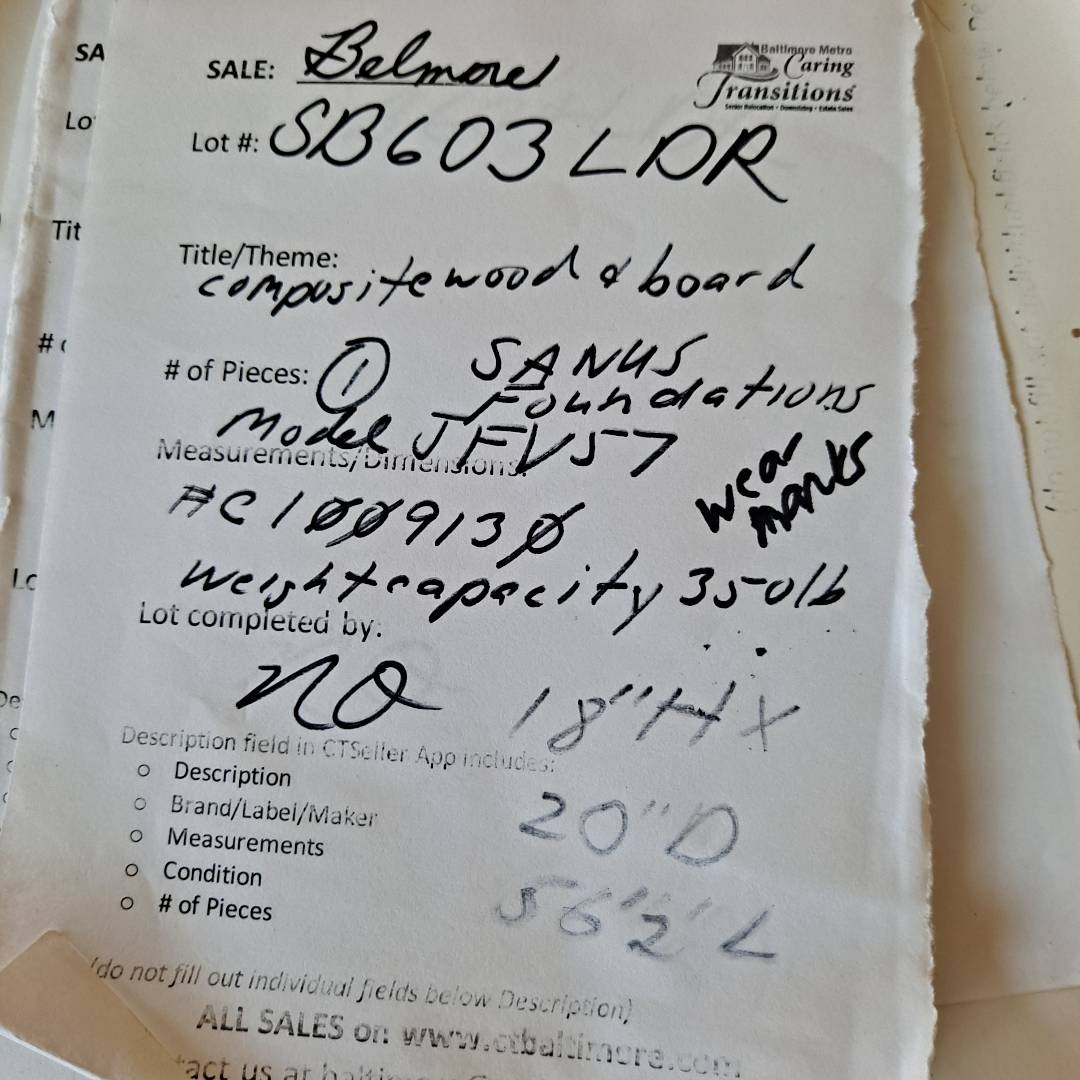 SALE: Belmore
Baltimore Metro
Caring
Transitions
Senior Relocation • Downsizing • Estate Sales
Lot #: SB603 LDR
Title/Theme:
composite wood & board
# of Pieces: 1 SANUS
Foundations
Model JFV57
Measurements/Dimensions:
wear
marks
AC1009130
weight capacity 350lb
Lot completed by:
18"H X
Description field in CTSeller App includes:
o Description
o Brand/Label/Maker
20"D
o Measurements
o Condition
56'2" L
o # of Pieces
(do not fill out individual fields below Description)
ALL SALES on www.ctbaltimore.com
SA
Lo
Tit
#
M
Lc
De